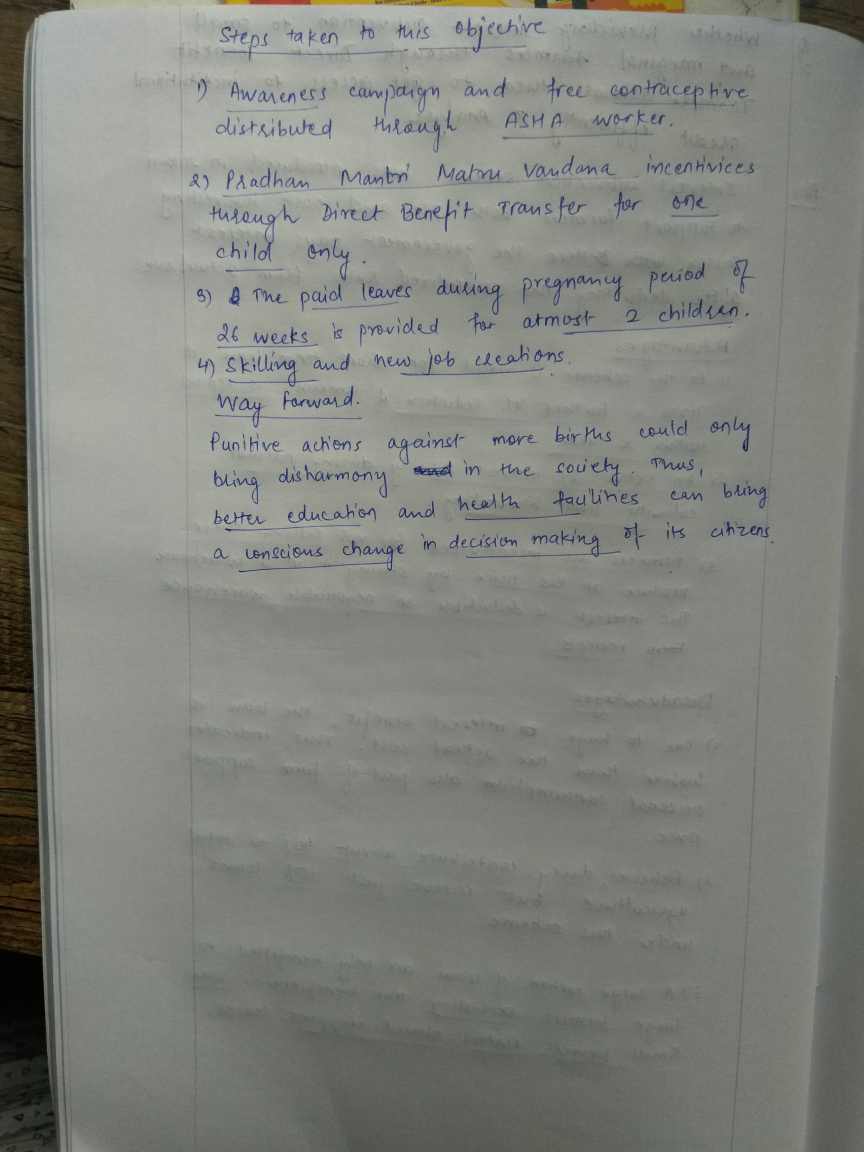 Steps taken to this objective
1) Awareness campaign and free contraceptive
distributed through ASHA worker.
2) Pradhan Mantri Matru Vandana incentivices
through Direct Benefit Transfer for one
child only.
3) The paid leaves during pregnancy period of
26 weeks is provided for atmost 2 children.
4) Skilling and new job creations.
Way forward.
Punitive actions against more births could only
bring disharmony in the society. Thus,
better education and health facilities can bring
a conscious change in decision making of its citizens.